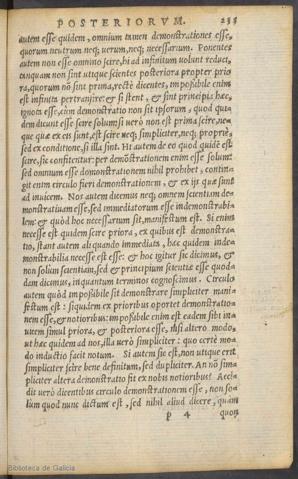 POSTERIORVM. 233
autem esse quidem, omnium tamen demonstrationes esse,
quorum neutrum neq; uerum, neq; necessarium. Ponentes
autem non esse omnino scire, hi ad infinitum uolunt reduci,
tanquam non sint utique scientes posteriora propter prio
ra, quorum nõn sint prima, rectè dicentes, impossibile enim
est infinita pertransire: & si stent, & sint principia hæc,
ignota esse, cùm demonstratio non sit ipsorum, quod qui-
dem dicunt esse scire solum: si uerò non est prima scire, ne-
que quæ ex eis sunt, est scire neq; simpliciter, neq; propriè,
sed ex conditione, si illa sint. Hi autem de eo quod quidē est
scire, sic confitentur: per demõstrationem enim esse solum:
sed omnium esse demonstrationem nihil prohibet, contin-
git enim circulo fieri demonstrationem, & ex ijs quæ sunt
ad inuicem. Nos autem dicimus neq; omnem scientiam de-
monstratiuam esse, sed immediatorum esse indemonstrabi-
lem: & quòd hoc necessarium sit, manifestum est. Si enim
necesse est quidem scire priora, ex quibus est demonstra-
tio, stant autem aliquando immediata, hæc quidem inde-
monstrabilia necesse est esse: & hoc igitur sic dicimus, &
non solùm scientiam, sed & principium scientiæ esse quod-
dam dicimus, inquantum terminos cognoscimus. Circulo
autem quòd impossibile sit demonstrare simpliciter mani-
festum est: siquidem ex prioribus oportet demonstratio-
nem esse, & notioribus: impossibile enim est eadem sibi in-
uicem simul priora, & posteriora esse, nisi altero modo,
ut hæc quidem ad nos, illa uerò simpliciter: quo certè mo-
do inductio facit notum. Si autem sic est, non utique erit
simpliciter scire bene definitum, sed dupliciter. An nõ sim-
pliciter altera demonstratio fit ex nobis notioribus? Acci-
dit uerò dicentibus circulo demonstrationem esse, non so-
lùm quod nunc dictum est, sed nihil aliud dicere, quàm
p 4 quoi
Biblioteca de Galicia